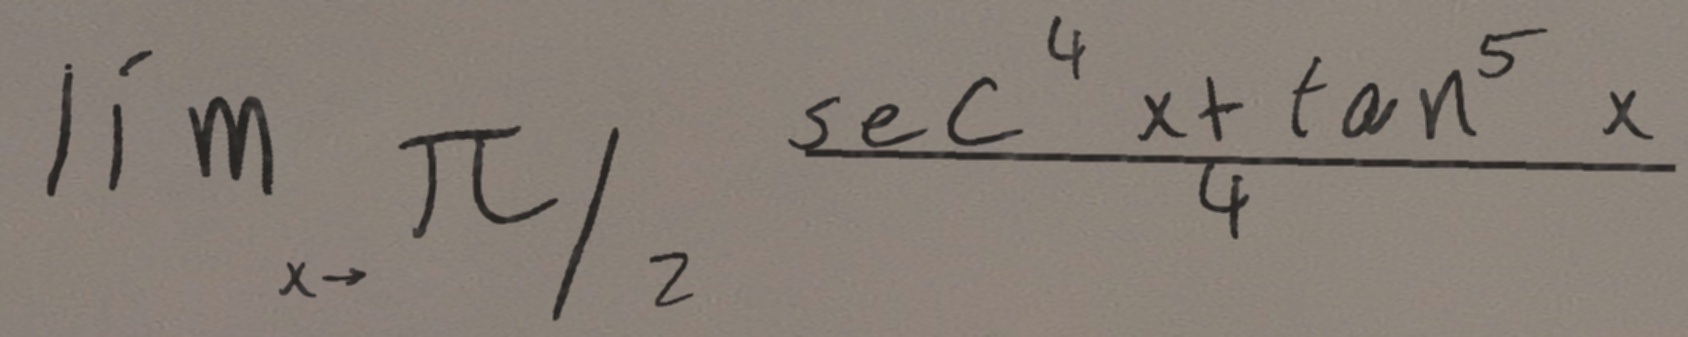 lim x→ π/2 sec⁴ x + tan⁵ x / 4